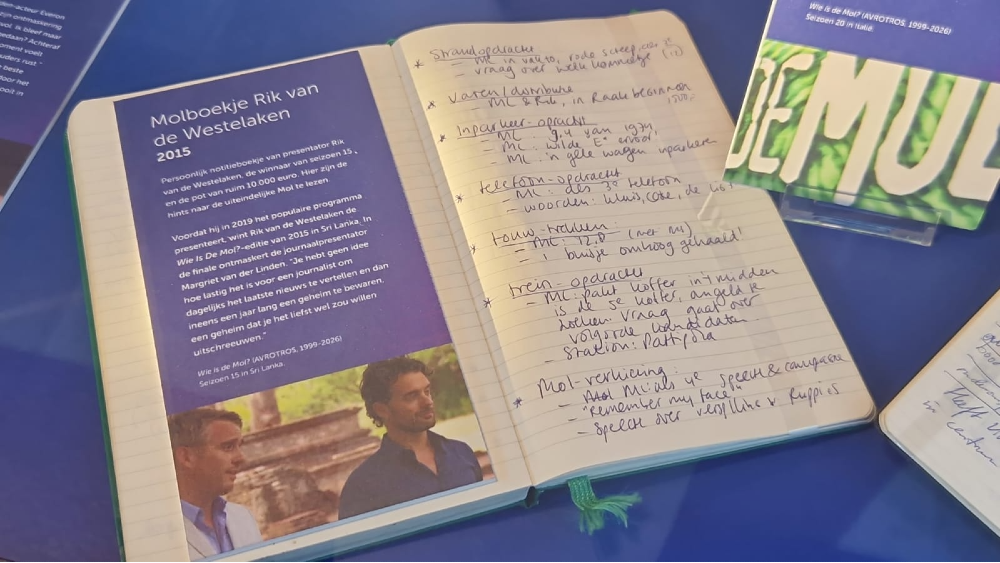 Molboekje Rik van
de Westelaken
2015
Persoonlijk notitieboekje van presentator Rik
van de Westelaken, de winnaar van seizoen 15
en de pot van ruim 10.000 euro. Hier zijn de
hints naar de uiteindelijke Mol te lezen.
Voordat hij in 2019 het populaire programma
presenteert, wint Rik van de Westelaken de
Wie Is De Mol?-editie van 2015 in Sri Lanka. In
de finale ontmaskert de journaalpresentator
Margriet van der Linden. "Je hebt geen idee
hoe lastig het is voor een journalist om
dagelijks het laatste nieuws te vertellen en dan
ineens een jaar lang een geheim te bewaren,
een geheim dat je het liefst wel zou willen
uitschreeuwen."
Wie is de Mol? (AVROTROS, 1999-2026)
Seizoen 15 in Sri Lanka.
* Strandopdracht
- ML in vak 10, rode streep
- vraag over welk
* varen/distributie
- ML & Rik, in Raak beginnen
* Inparkeer-opracht
- ML: 9,4 van 1974,
- ML: wilde "E" ervoor
- ML in gele wagen inparkeren
* telefoon-opdracht
- ML: des 3e telefoon
- woorden: kluis, code, de
* touw-trekken:
- ML: 12,8 (met
- 1 busje omhoog gehaald!
* trein-opdracht
- ML: pakt koffer in 't midden
is de 5e koffer,
zoeken vraag gaat over
volgorde kandidaten
- Station: Pattipola
* Mol-verkiezing:
- ML: als 4e speech & campagne
- "Remember my face"
- Speech over verspilling v
Wie is de Mol? (AVROTROS, 1999-2026)
Seizoen 20 in Italië.
DE MOL
den-acteur Everon
zijn ontmaskering
vol. Ik bleef maar
gedaan? Achteraf
moment voelt
ouders rust."
beste
door het
ooit in